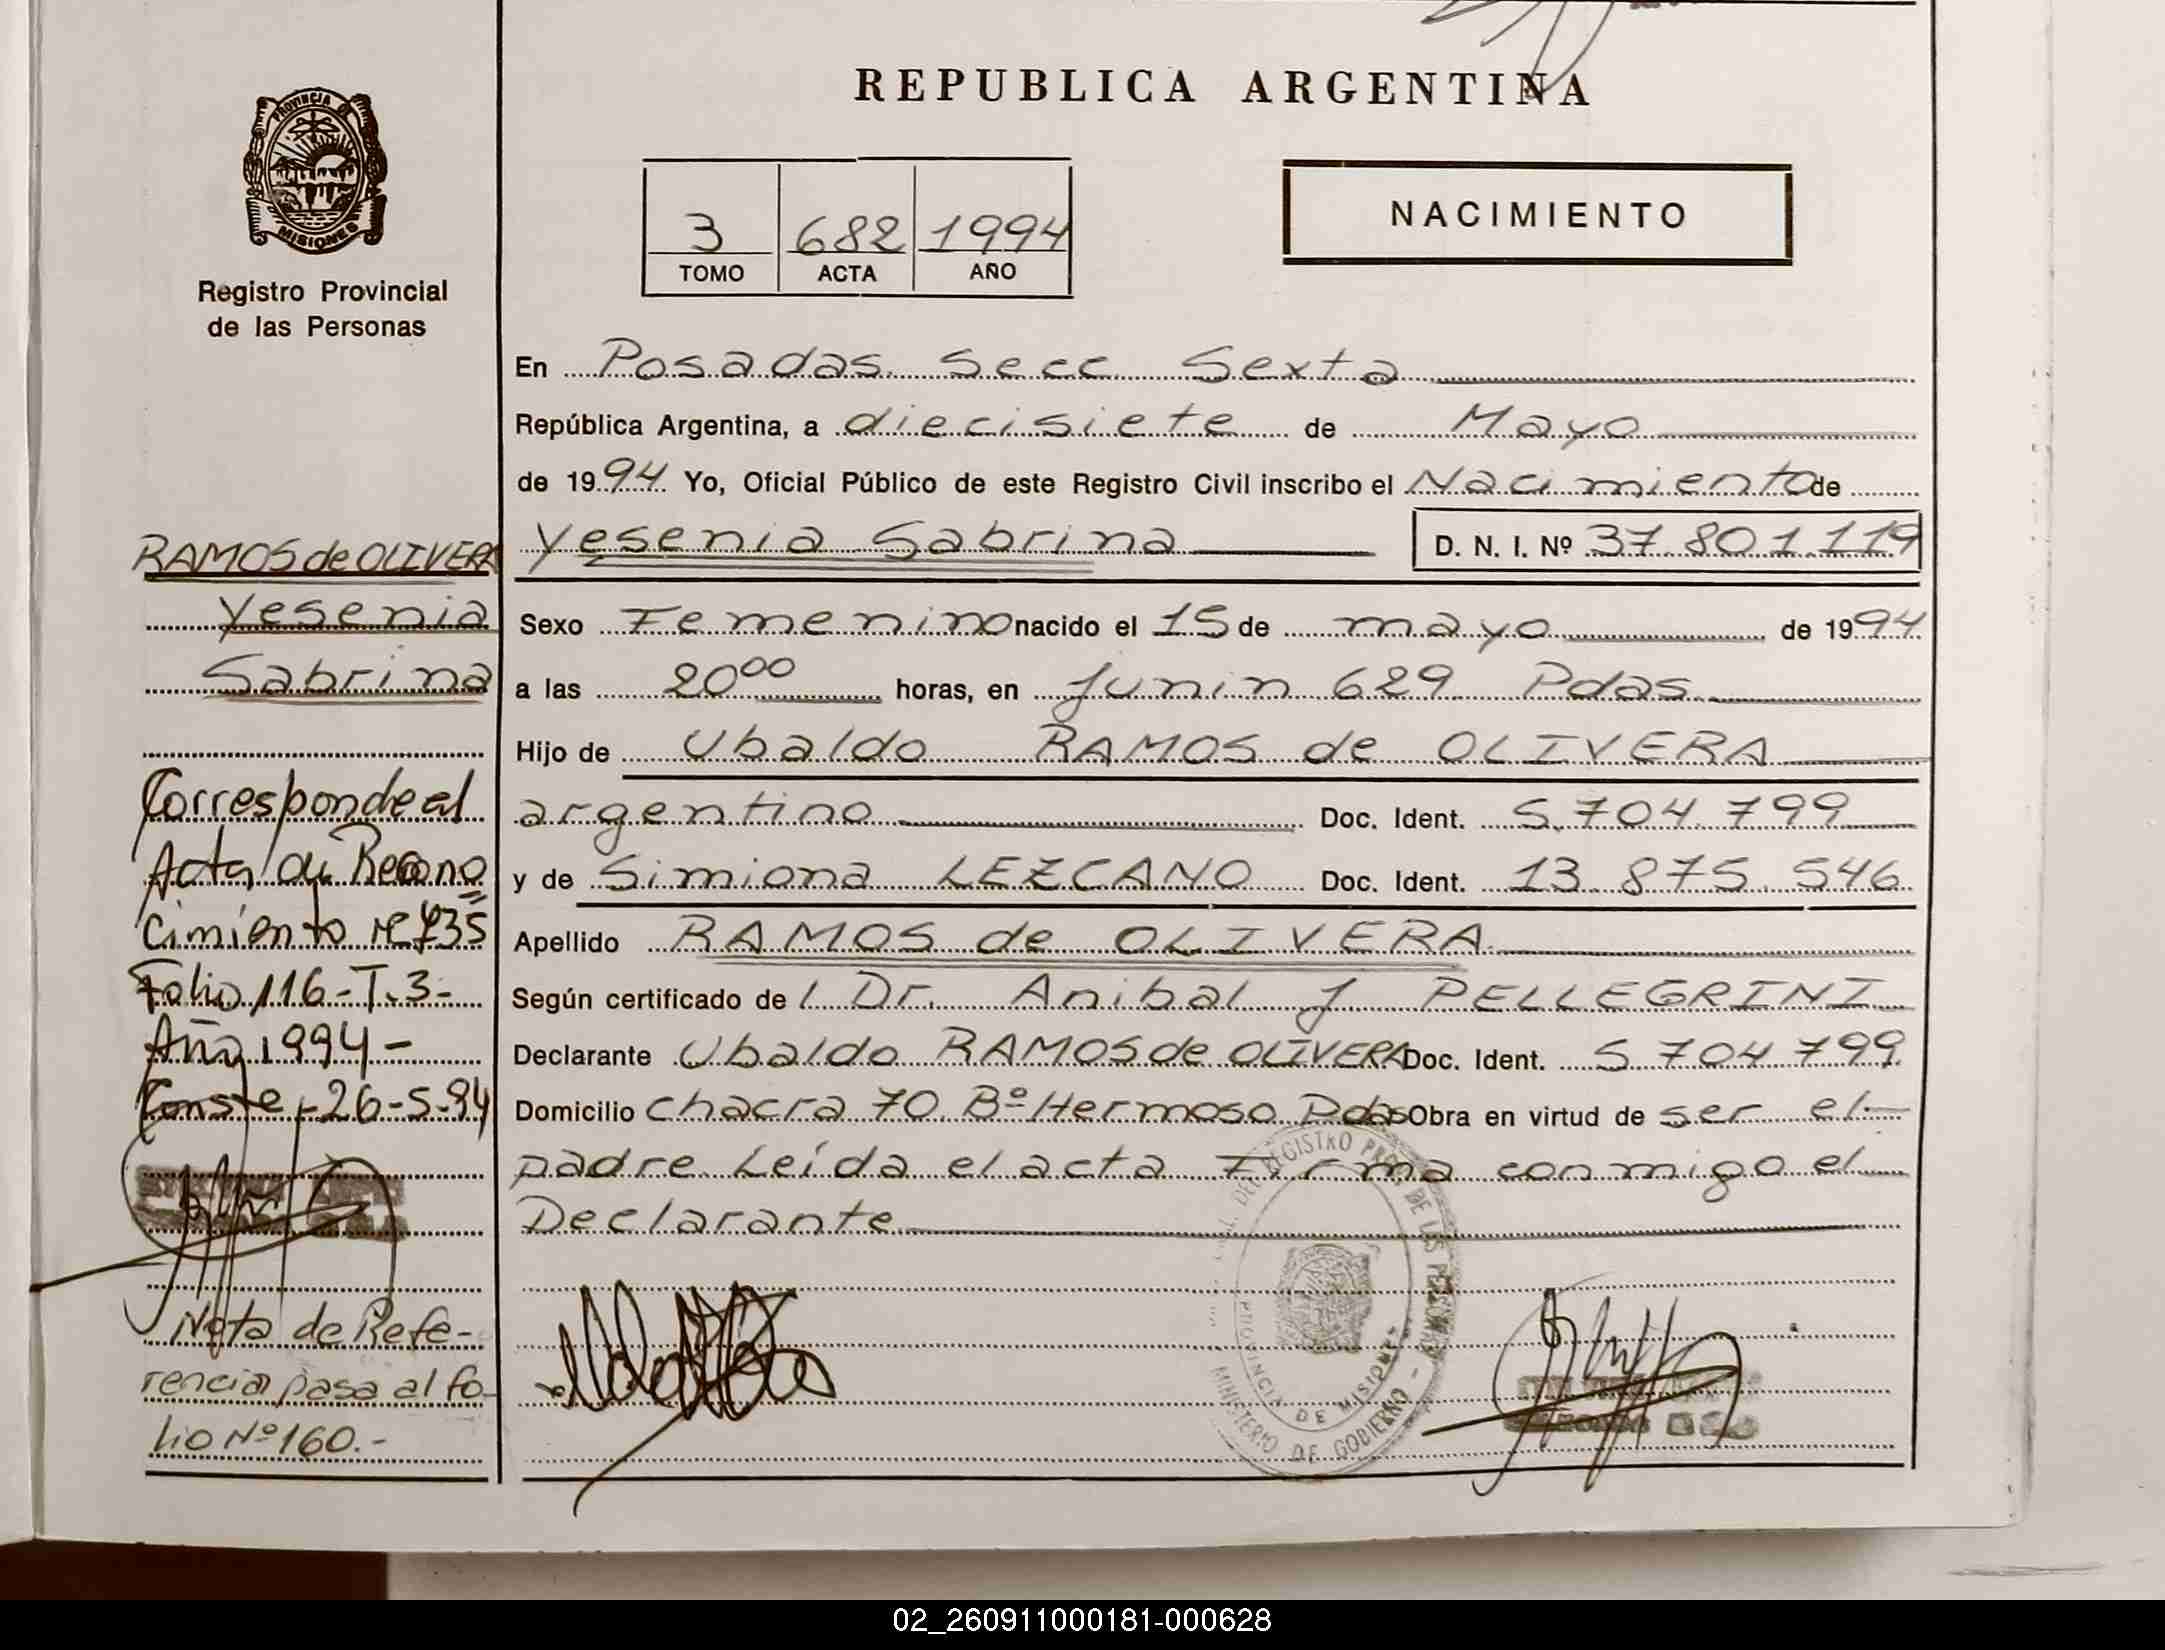 REPUBLICA ARGENTINA
PROVINCIA DE
MISIONES
Registro Provincial
de las Personas
3 682 1994
TOMO ACTA AÑO
NACIMIENTO
En Posadas Secc Sexta
República Argentina, a diecisiete de Mayo
de 1994 Yo, Oficial Público de este Registro Civil inscribo el Nacimiento de
Yesenia Sabrina D. N. I. Nº 37.801.119
Sexo Femenino nacido el 15 de mayo de 1994
a las 20⁰⁰ horas, en Junin 629 Pdas
Hijo de Ubaldo RAMOS de OLIVERA
argentino Doc. Ident. 5.704.799
y de Simiona LEZCANO Doc. Ident. 13.875.546
Apellido RAMOS de OLIVERA
Según certificado de Dr. Anibal J PELLEGRINI
Declarante Ubaldo RAMOS de OLIVERA Doc. Ident. 5.704.799
Domicilio chacra 70 Bº Hermoso Pdas Obra en virtud de ser el
padre Leída el acta Firma conmigo el
Declarante
RAMOS de OLIVERA
Yesenia
Sabrina
Corresponde al
Acta de Recono
cimiento Nº 735
Folio 116-T.3-
Año 1994-
Conste-26-5-94
Nota de Refe-
rencia pasa al fo-
lio Nº 160.-
REGISTRO PROV. DE LAS PERSONAS
PROVINCIA DE MISIONES
MINISTERIO DE GOBIERNO -
02_260911000181-000628